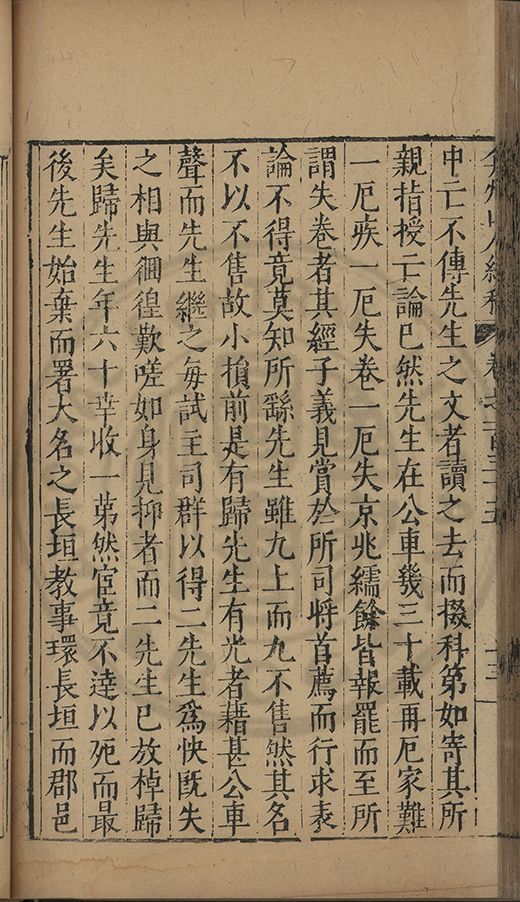 弇州山人續稿 卷之一百三十五 十三
中亡不傳先生之文者讀之去而掇科第如寄其所
親指授亡論已然先生在公車幾三十載再厄家難
一厄疾一厄失卷一厄失京兆繻餘皆報罷而至所
謂失卷者其經子義見賞於所司將首薦而行求表
論不得竟莫知所繇先生雖九上而九不售然其名
不以不售故小損前是有歸先生有光者藉甚公車
聲而先生繼之每試主司群以得二先生為快既失
之相與徊徨歎嗟如身見抑者而二先生已放棹歸
矣歸先生年六十幸收一第然宦竟不達以死而最
後先生始棄而署大名之長垣教事環長垣而郡邑